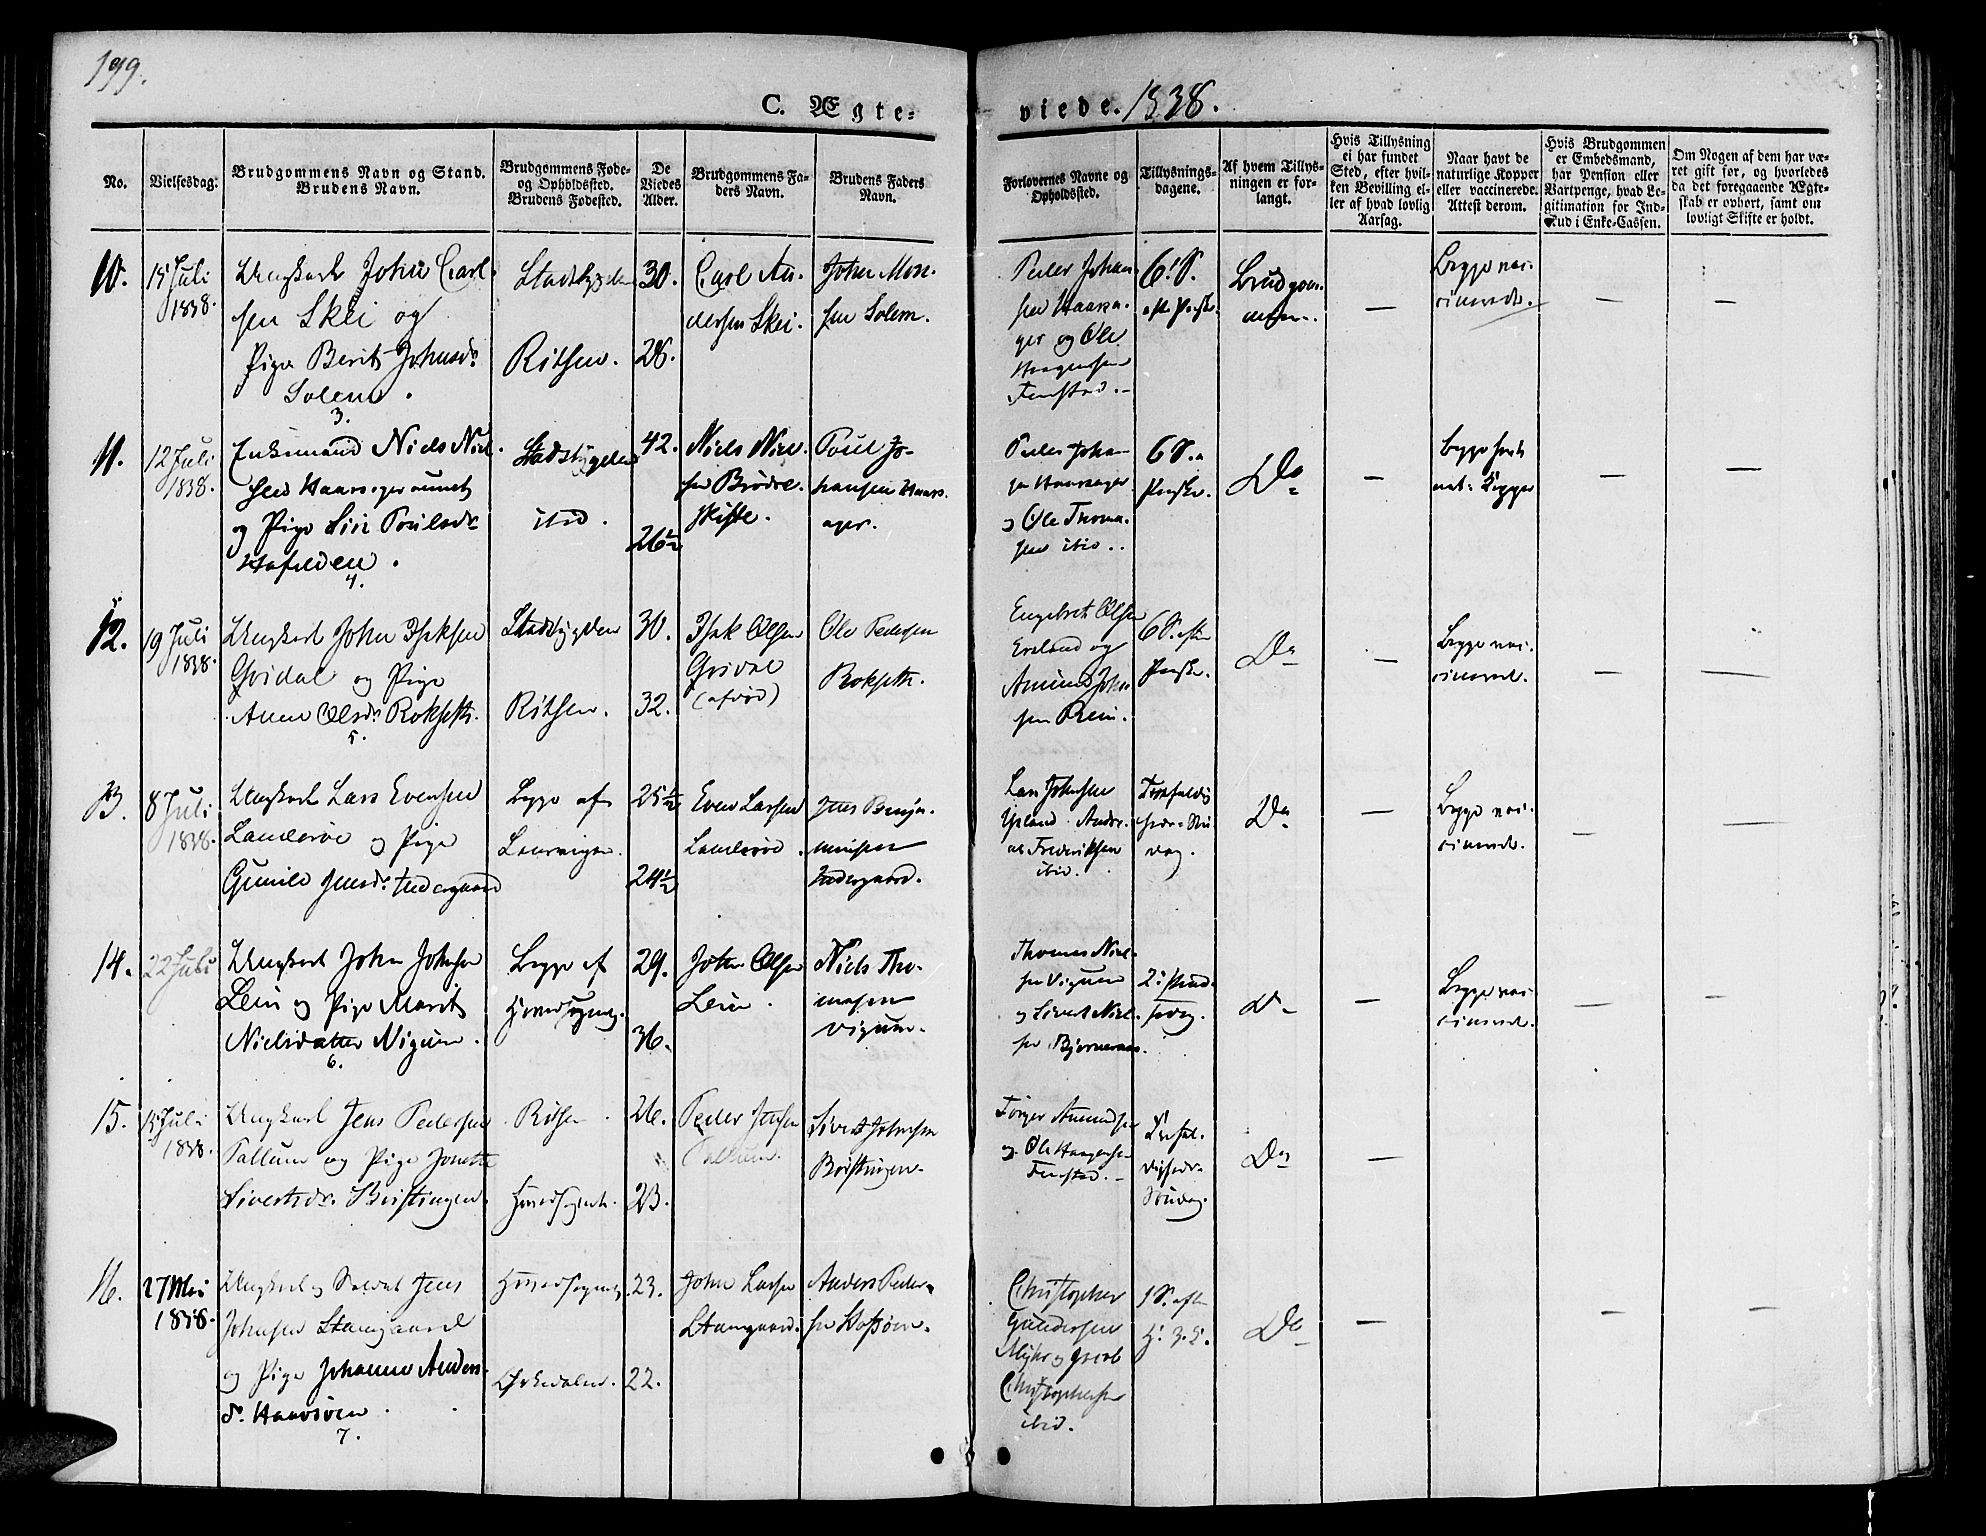 199.
C. Ægte=
viede. 1838.
No.
Vielsesdag.
Brudgommens Navn og Stand.
Brudens Navn.
Brudgommens Føde-
og Opholdssted.
Brudens Fødested.
De
Viedes
Alder.
Brudgommens Fa-
ders Navn.
Brudens Faders
Navn.
Forlovernes Navne og
Opholdssted.
Tillysnings-
dagene.
Af hvem Tillys-
ningen er for-
langt.
Hvis Tillysning
ei har fundet
Sted, efter hvil-
ken Bevilling el-
ler af hvad lovlig
Aarsag.
Naar havt de
naturlige Kopper
eller vaccinerede.
Attest derom.
Hvis Brudgommen
er Embedsmand,
har Pension eller
Vartpenge, hvad Le-
gitimation for Ind-
skud i Enke-Cassen.
Om Nogen af dem har væ-
ret gift før, og hvorledes
da det foregaaende Ægte-
skab er ophørt, samt om
lovligt Skifte er holdt.
10.
15 Juli
1838.
Ungkarl John Carl-
sen Skei og
Pige Berit Johnsdr
Solem.
3.
Stadsbygden
Ritsen.
30.
28.
Carl An-
dersen Skei.
John Mon-
sen Solem.
Peder Johan-
sen Haarsa-
ger og Ole
Haagensen
Fenstad.
6! S.
eft. Paaske.
Brudgom-
men.
—
Begge vac-
cinerede.
—
—
11.
12 Juli
1838.
Enkemand Niels Niel-
sen Haarsager
og Pige Siri Poulsdr
4.
Stadsbygden
ibid.
42.
26½
Niels Niel-
sen Brødre-
skifte.
Poul Jo-
hansen Haars-
ager.
Peder Johan-
sen Haarsager
og Ole Thoma-
sen ibid.
6 S. e
Paaske.
Do
—
Begge havt
nat: Kopper
—
—
12.
19 Juli
1838.
Ungkarl John Isaksen
Gridal og Pige
Anne Olsdr Rokseth.
5.
Stadsbygden
Ritsen.
30.
32.
Isak Olsen
Gridal
(afdød)
Ole Pedersen
Rokseth.
Engebret Olsen
og
Amund John-
sen Rein.
6 S. efter
Paaske.
Do
—
Begge vac-
cinerede.
—
—
13.
8 Juli
1838.
Ungkarl Lars Evensen
Landerøe og Pige
Gunild Jensdr Indergaard
Begge af
Leensvigen.
25½
24½
Even Larsen
Landerøe.
Jens Benja-
minsen
Indergaard.
Lars Johnsen
Andre-
as Frederiksen
ibid.
Trefoldig-
heds-Søn-
dag.
Do
—
Begge vac-
cinerede.
—
—
14.
22 Juli
Ungkarl John Johnsen
Lein og Pige Marit
Nielsdatter Vigum.
6.
Begge af
Hovedsognet.
29.
36.
John Olsen
Lein.
Niels Tho-
masen
Vigum.
Thomas Niel-
sen Vigum
og Sivert Niel-
sen Bjørnernes.
2! Pind-
sedag.
Do
—
Begge vac-
cinerede.
—
—
15.
15 Juli
1838.
Ungkarl Jens Pedersen
Fallum og Pige Jonette
Sivertsdr. Bristingen.
Ritsen
Hovedsognet.
26.
23.
Peder Jensen
Fallum.
Sivert Johnsen
Bristingen.
Torger Amundsen
og Ole Haagensen
Fenstad.
Trefol-
digheds
Søndag.
Do
—
16.
27 Mai
1838.
Ungkarl og Soldat Jens
Johnsen Stamgaard
og Pige Johanna Anders-
d.
7.
Hovedsognet
Ørkedalen.
23.
22.
John Larsen
Stamgaard.
Anders Peder-
sen
Christopher
Gundersen
Myhr og Jacob
Christophersen
ibid.
1 S. efter
H. 3 K.
Do
—
—
—